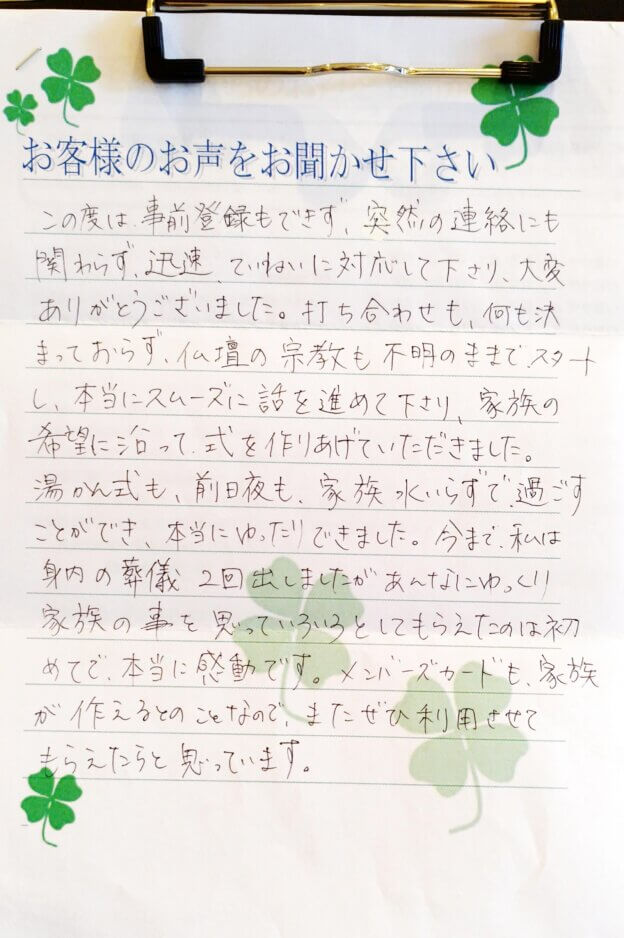 お客様のお声をお聞かせ下さい
この度は、事前登録もできず、突然の連絡にも
関わらず、迅速、ていねいに対応して下さり、大変
ありがとうございました。打ち合わせも、何も決
まっておらず、仏壇の宗教も不明のままで、スタート
し、本当にスムーズに話を進めて下さり、家族の
希望に沿って、式を作りあげていただきました。
湯かん式も、前日夜も、家族水いらずで、過ごす
ことができ、本当にゆったりできました。今まで、私は
身内の葬儀 2回出しましたがあんなにゆっくり
家族の事を思っていろいろとしてもらえたのは初
めてで、本当に感動です。メンバーズカードも、家族
が作えるとのことなので、またぜひ利用させて
もらえたらと思っています。